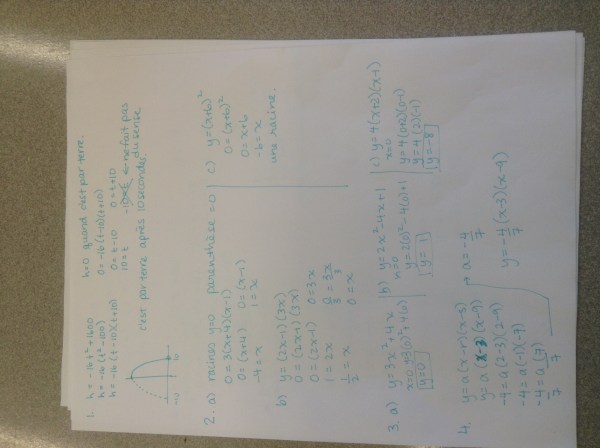 1. h = -16t² + 1600
h = -16(t² - 100)
h = -16(t-10)(t+10)
h=0 quand c'est par terre.
0 = -16(t-10)(t+10)
0 = t-10 0 = t+10
10 = t -10 = t ← ne fait pas
du sens
c'est par terre après 10 secondes
-10 10
2. a) racines y=0 parenthèse = 0
0 = 3(x+4)(x-1)
0 = (x+4) 0 = (x-1)
-4 = x 1 = x
b) y = (2x-1)(3x)
0 = (2x-1)(3x)
0 = (2x-1) 0 = 3x
1 = 2x 0/3 = 3x/3
1/2 = x 0 = x
c) y = (x+6)²
0 = (x+6)²
0 = x+6
-6 = x
une racine.
3. a) y = 3x² + 4x
x=0 3(0)² + 4(0)
y=0
b) y = 2x² - 4x + 1
x=0
y = 2(0)² - 4(0) + 1
y = 1
c) y = 4(x+2)(x-1)
x=0
y = 4(0+2)(0-1)
y = 4(2)(-1)
y = -8
4. y = a(x-r)(x-s)
y = a(x-3)(x-9)
-4 = a(2-3)(2-9)
-4 = a(-1)(-7)
-4/7 = a(7)/7
→ a = -4/7
y = -4/7 (x-3)(x-9)